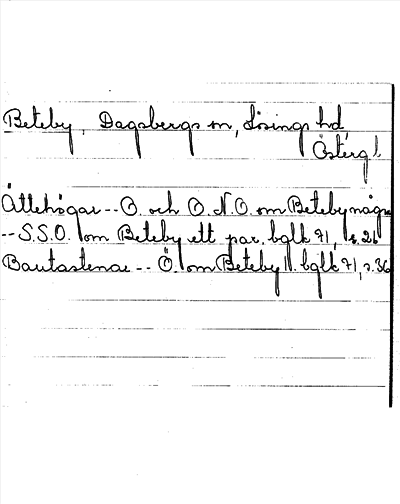 Beteby, Dagsbergs sn, Lösings hd,
Österg.
Ättehögar -- O. och O.N.O. om Beteby några
-- S.S.O. om Beteby ett par. bglk 71, s. 26
Bautastenar -- Ö. om Beteby 11. bglk 71, s. 36